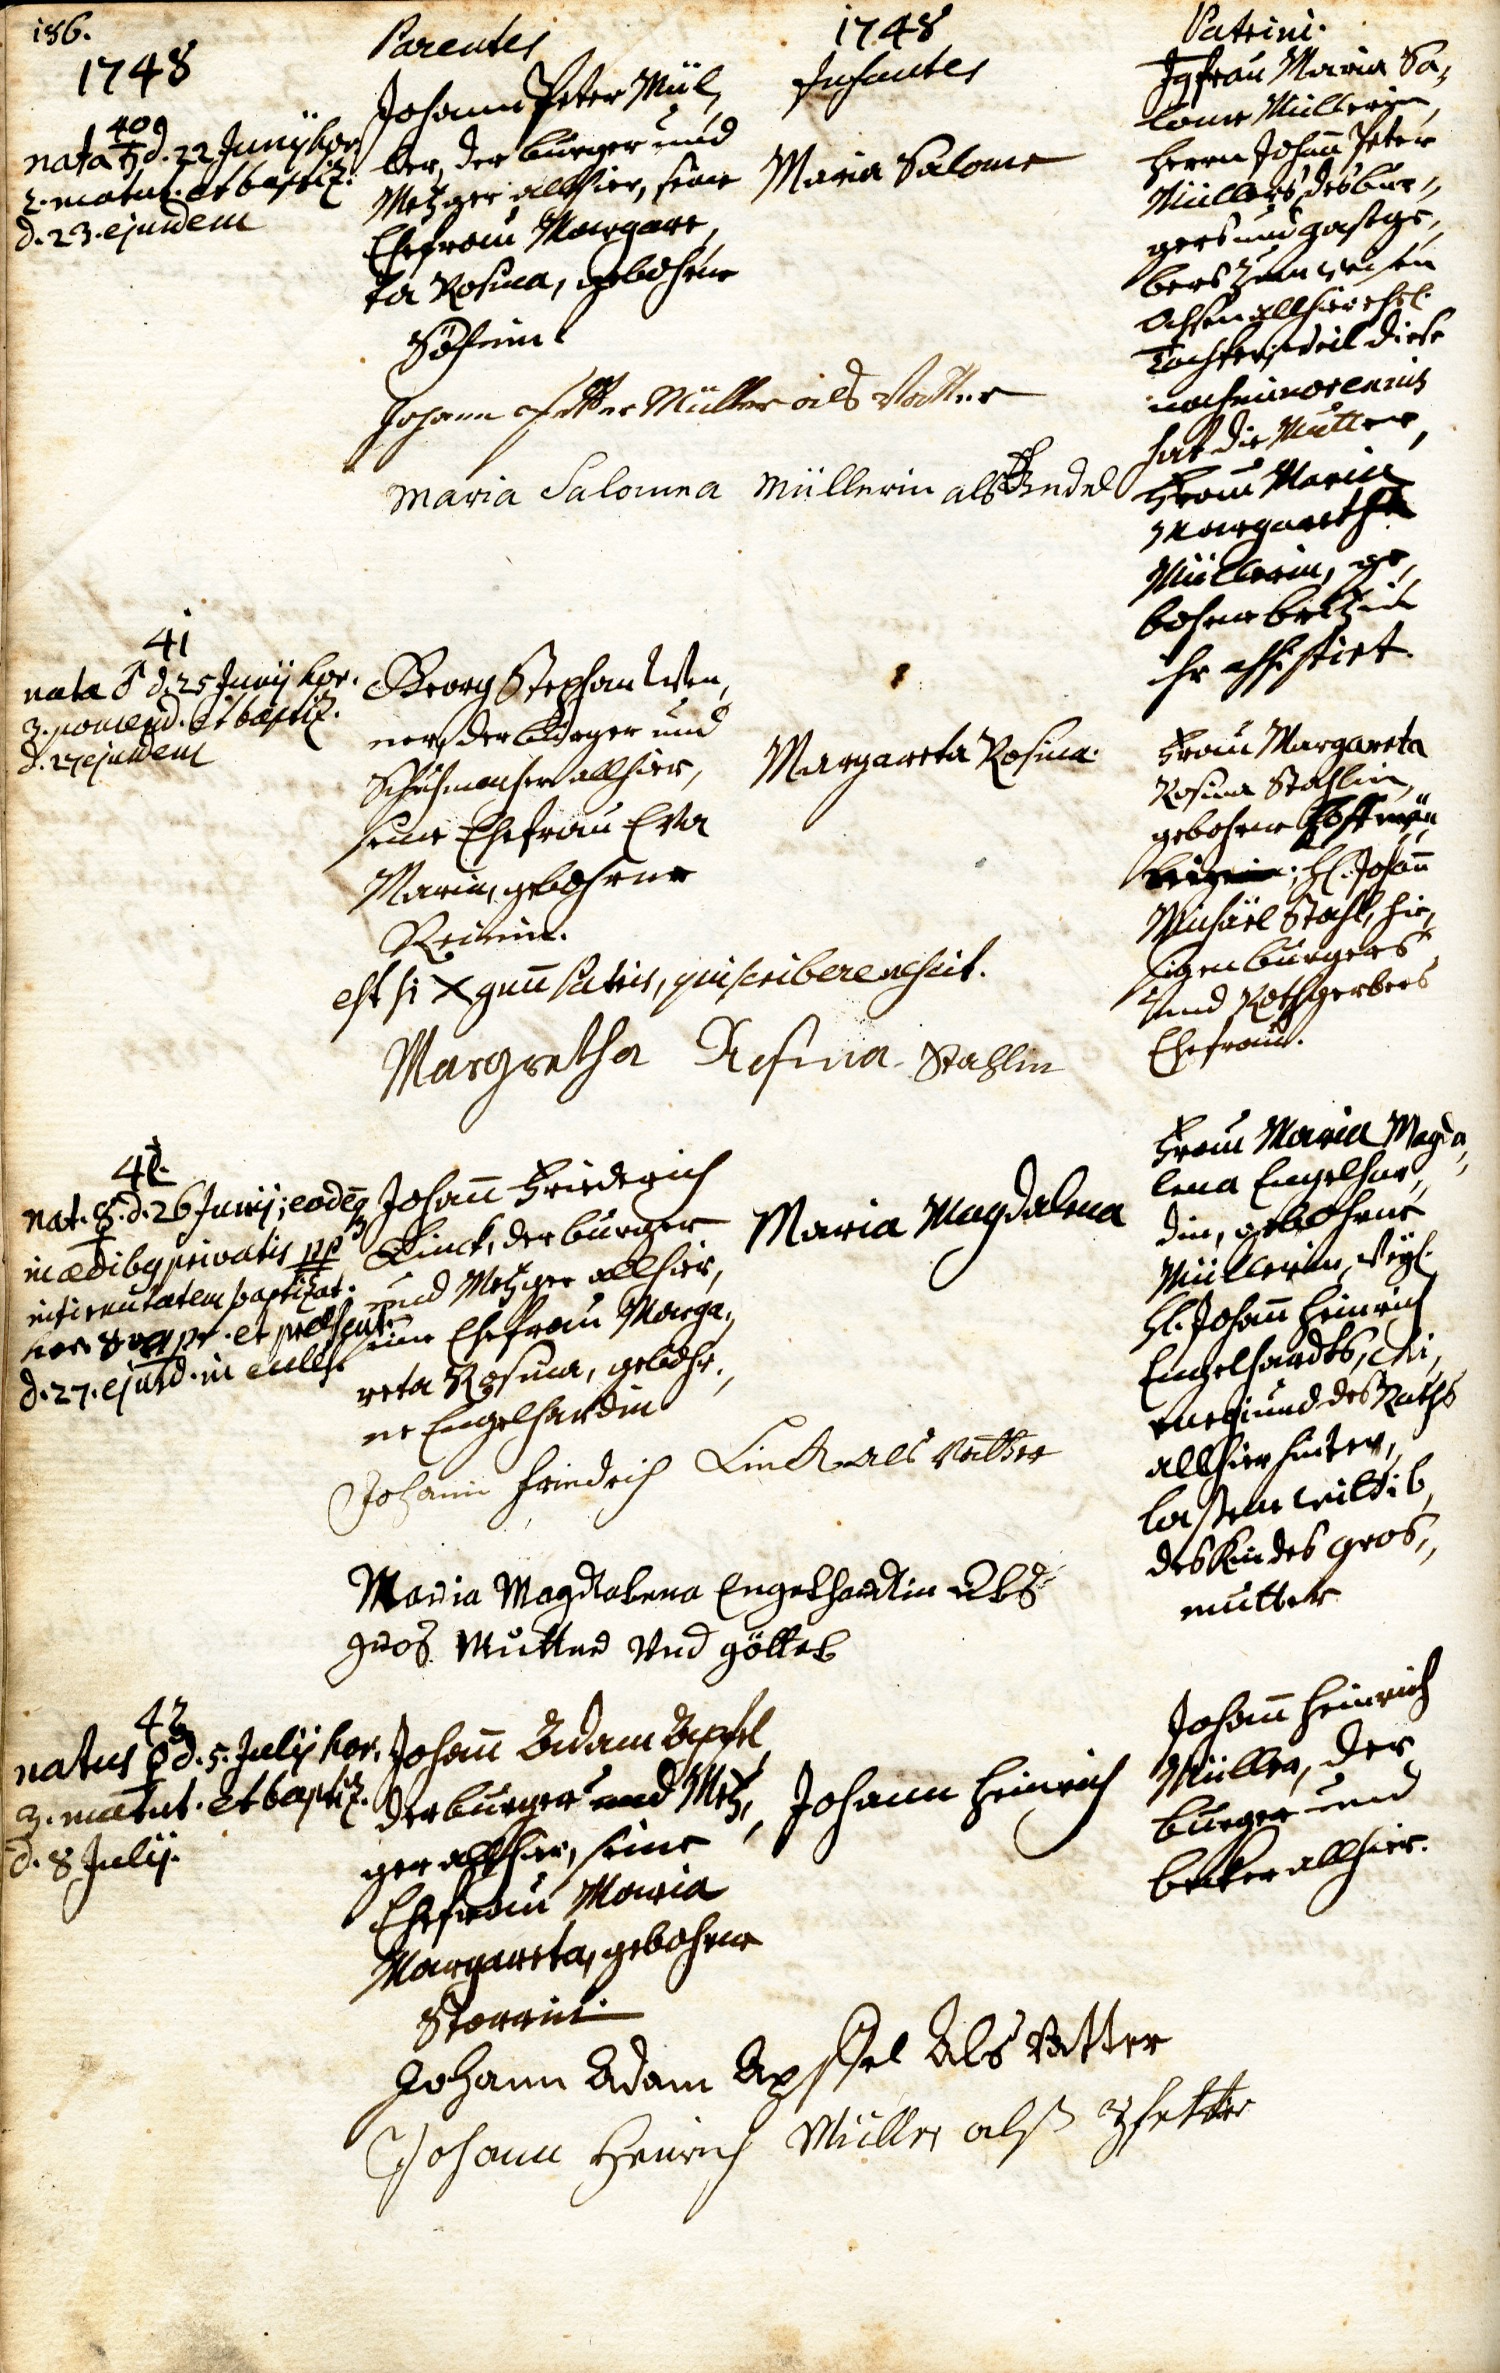 186.
1748
Parentes
1748
Infantes
Patrini.
40
nata ♄ d. 22 Junij hor.
2. matut. et baptiz.
d. 23. ejusdem
Johann Peter Mül„
ler, der burger und
Metzger allhier, seine
Ehefrau Margare„
ta Rosina, gebohrne
Maria Salome
Jgfrau Maria Sa„
lome Müllerin,
Herrn Johann Peter
Müllers, des bur„
gers und gastge„
bers zum
Ochsen allhier ehel.
Tochter, weil diese
noch minorennis
hat die Mutter,
Frau Maria
Margaretha
Müllerin, ge„
bohrne
ihr assistirt.
Johann Petter Müller als Vatter
Maria Salomea Müllerin als
41
nata ♂ d. 25 Junij hor.
3. pomerid. et baptiz.
d. 27 ejusdem
Georg Stephan Wen„
ner, der burger und
Schuhmacher allhier,
seine Ehefrau Eva
Maria, gebohrne
Margareta Rosina.
Frau Margareta
Rosina Stahlin,
gebohrne
Hl. Johann
Michäel Stahl, hie„
sigen burgers
und Rothgerbers
Ehefrau.
est hi X gnum Patris, qui scribere nescit.
Margretha Rosina Stahlin
42.
nat. ☿ d. 26 Junij; eodem
in ædibus privatis pp
infirmitatem baptizat.
d. 27. ejusd. in eccles.
Johann Friederich
Linck, der burger
und Metzger allhier,
seine Ehefrau Marga„
reta Rosina, gebohr„
ne Engelhardin
Maria Magdalena
Frau Maria Magda„
lena Engelhar„
din, gebohrne
Müllerin, Weyl.
Hl. Johann Heinrich
Engelhardts, Chi„
rurgi und des Raths
allhier hinter„
lassene Wittib,
des Kindes gros„
mutter
Johann Friedrich Linck als Vatter
Maria Magdalena Engelhardtin Als
gros Mutter Und göttel
43
natus ♀ d. 5. Julij hor.
3. matut. et baptiz.
d. 8 Julij.
Johann Adam Apfel
der burger und Metz„
ger allhier, seine
Ehefrau Maria
Margareta, gebohrne
Storrin.
Johann Heinrich
Johann Heinrich
Müller, der
burger und
becker allhier.
Johann Adam Apffel Als Vatter
Johann Henrich Müller alß Pfetter